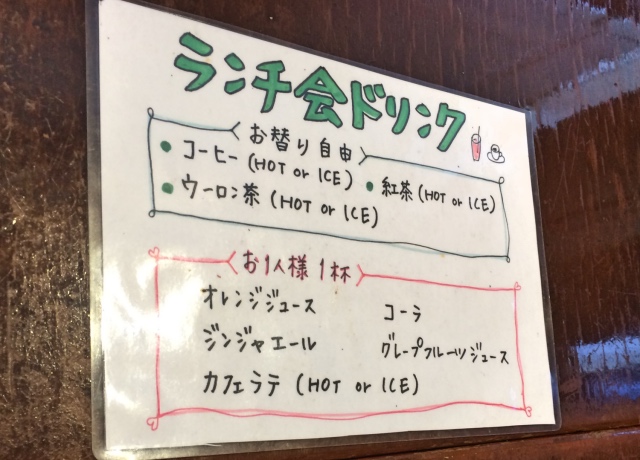 ランチ会ドリンク
お替り自由
• コーヒー (HOT or ICE) • 紅茶 (HOT or ICE)
• ウーロン茶 (HOT or ICE)
お1人様1杯
オレンジジュース コーラ
ジンジャエール グレープフルーツジュース
カフェラテ (HOT or ICE)